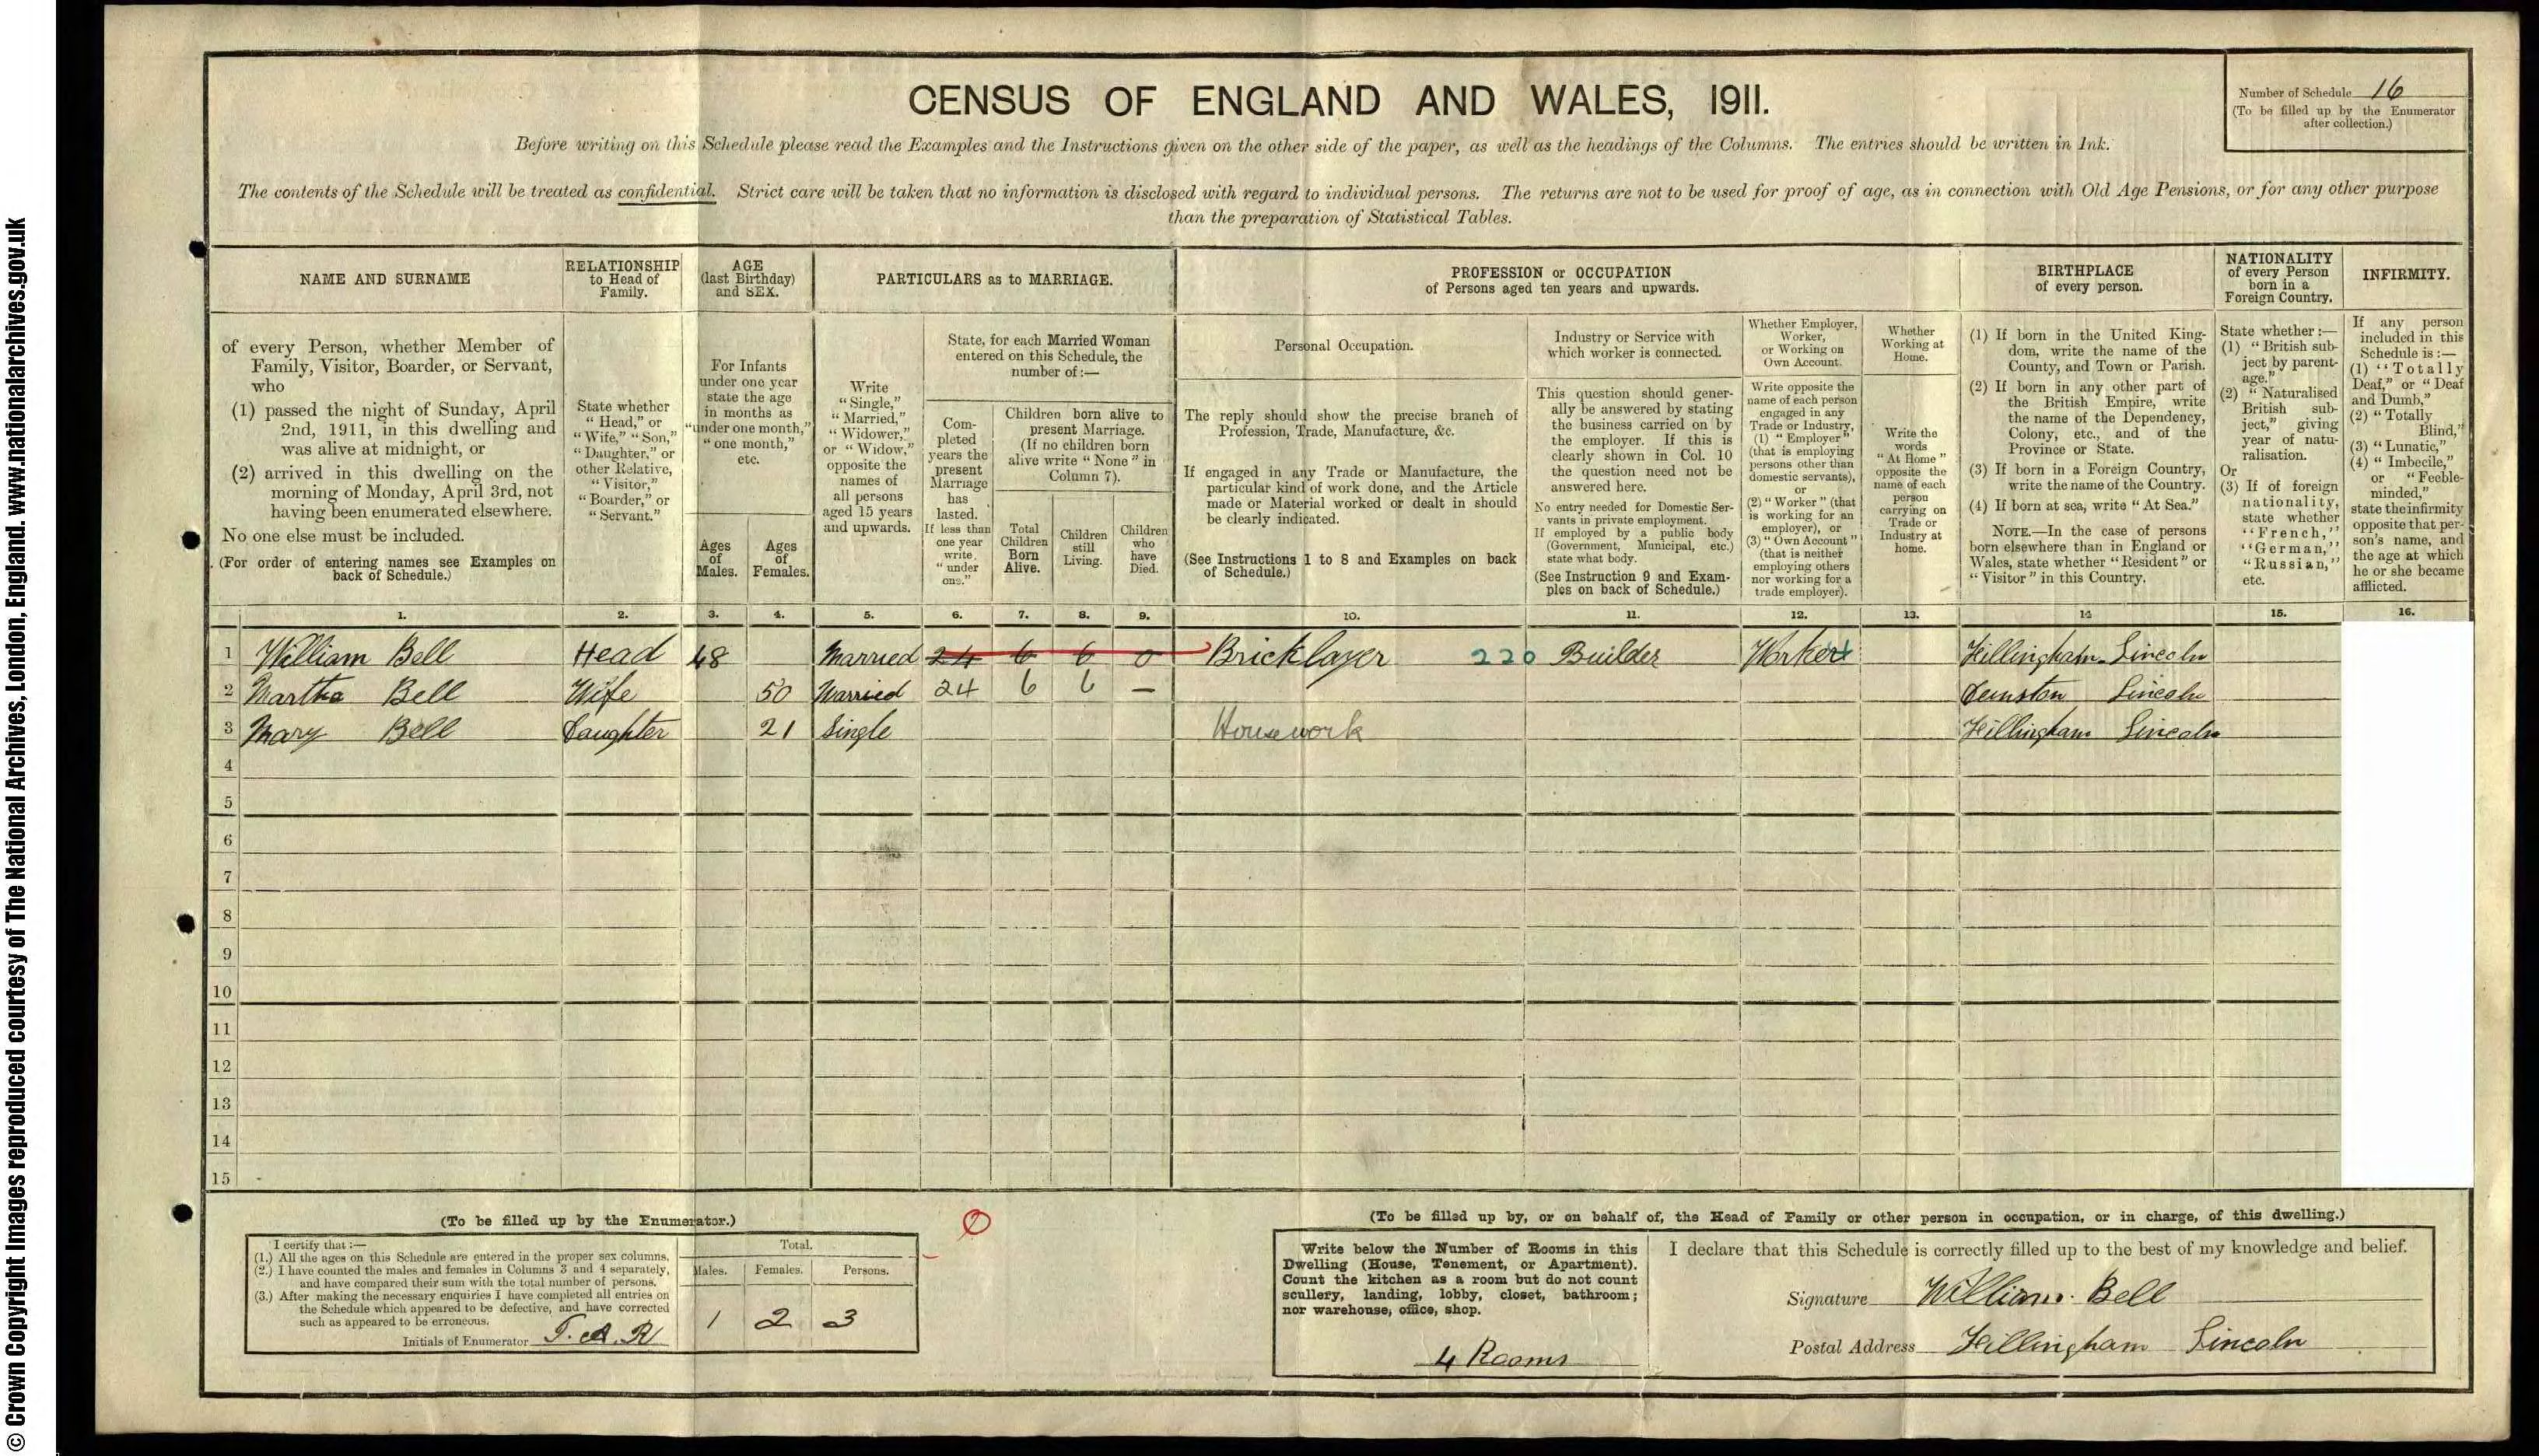 CENSUS OF ENGLAND AND WALES, 1911.
Number of Schedule 16
(To be filled up by the Enumerator
after collection.)
Before writing on this Schedule please read the Examples and the Instructions given on the other side of the paper, as well as the headings of the Columns. The entries should be written in Ink.
The contents of the Schedule will be treated as confidential. Strict care will be taken that no information is disclosed with regard to individual persons. The returns are not to be used for proof of age, as in connection with Old Age Pensions, or for any other purpose
than the preparation of Statistical Tables.
NAME AND SURNAME
of every Person, whether Member of
Family, Visitor, Boarder, or Servant,
who
(1) passed the night of Sunday, April
2nd, 1911, in this dwelling and
was alive at midnight, or
(2) arrived in this dwelling on the
morning of Monday, April 3rd, not
having been enumerated elsewhere.
No one else must be included.
(For order of entering names see Examples on
back of Schedule.)
RELATIONSHIP
to Head of
Family.
State whether
"Head," or
"Wife," "Son,"
"Daughter," or
other Relative,
"Visitor,"
"Boarder," or
"Servant."
AGE
(last Birthday)
and SEX.
For Infants
under one year
state the age
in months as
"under one month,"
"one month,"
etc.
Ages
of
Males.
Ages
of
Females.
PARTICULARS as to MARRIAGE.
Write
"Single,"
"Married,"
"Widower,"
or "Widow,"
opposite the
names of
all persons
aged 15 years
and upwards.
State, for each Married Woman
entered on this Schedule, the
number of:—
Com-
pleted
years the
present
Marriage
has
lasted.
If less than
one year
write
"under
one."
Children born alive to
present Marriage.
(If no children born
alive write "None" in
Column 7).
Total
Children
Born
Alive.
Children
still
Living.
Children
who
have
Died.
PROFESSION or OCCUPATION
of Persons aged ten years and upwards.
Personal Occupation.
The reply should show the precise branch of
Profession, Trade, Manufacture, &c.
If engaged in any Trade or Manufacture, the
particular kind of work done, and the Article
made or Material worked or dealt in should
be clearly indicated.
(See Instructions 1 to 8 and Examples on back
of Schedule.)
Industry or Service with
which worker is connected.
This question should gener-
ally be answered by stating
the business carried on by
the employer. If this is
clearly shown in Col. 10
the question need not be
answered here.
No entry needed for Domestic Ser-
vants in private employment.
If employed by a public body
(Government, Municipal, etc.)
state what body.
(See Instruction 9 and Exam-
ples on back of Schedule.)
Whether Employer,
Worker,
or Working on
Own Account.
Write opposite the
name of each person
engaged in any
Trade or Industry,
(1) "Employer"
(that is employing
persons other than
domestic servants),
or
(2) "Worker" (that
is working for an
employer), or
(3) "Own Account"
(that is neither
employing others
nor working for a
trade employer).
Whether
Working at
Home.
Write the
words
"At Home"
opposite the
name of each
person
carrying on
Trade or
Industry at
home.
BIRTHPLACE
of every person.
(1) If born in the United King-
dom, write the name of the
County, and Town or Parish.
(2) If born in any other part of
the British Empire, write
the name of the Dependency,
Colony, etc., and of the
Province or State.
(3) If born in a Foreign Country,
write the name of the Country.
(4) If born at sea, write "At Sea."
NOTE.—In the case of persons
born elsewhere than in England or
Wales, state whether "Resident" or
"Visitor" in this Country.
NATIONALITY
of every Person
born in a
Foreign Country.
State whether:—
(1) "British sub-
ject by parent-
age."
(2) "Naturalised
British sub-
ject," giving
year of natu-
ralisation.
Or
(3) If of foreign
nationality,
state whether
"French,"
"German,"
"Russian,"
etc.
INFIRMITY.
If any person
included in this
Schedule is:—
(1) "Totally
Deaf," or "Deaf
and Dumb,"
(2) "Totally
Blind,"
(3) "Lunatic,"
(4) "Imbecile,"
or "Feeble-
minded,"
state the infirmity
opposite that per-
son's name, and
the age at which
he or she became
afflicted.
1. 2. 3. 4. 5. 6. 7. 8. 9. 10. 11. 12. 13. 14 15. 16.
1 William Bell Head 48 Married 24 6 6 0 Bricklayer 220 Builder Worker Hillingham Lincoln
2 Martha Bell Wife 50 Married 24 6 6 — Lincoln
3 Mary Bell Daughter 21 Single Housework Hillingham Lincoln
4
5
6
7
8
9
10
11
12
13
14
15
(To be filled up by the Enumerator.)
I certify that:—
(1.) All the ages on this Schedule are entered in the proper sex columns.
(2.) I have counted the males and females in Columns 3 and 4 separately,
and have compared their sum with the total number of persons.
(3.) After making the necessary enquiries I have completed all entries on
the Schedule which appeared to be defective, and have corrected
such as appeared to be erroneous.
Initials of Enumerator T. A. R
Total.
Males. Females. Persons.
1 2 3
(To be filled up by, or on behalf of, the Head of Family or other person in occupation, or in charge, of this dwelling.)
Write below the Number of Rooms in this
Dwelling (House, Tenement, or Apartment).
Count the kitchen as a room but do not count
scullery, landing, lobby, closet, bathroom;
nor warehouse, office, shop.
4 Rooms
I declare that this Schedule is correctly filled up to the best of my knowledge and belief.
Signature William Bell
Postal Address Hillingham Lincoln
© Crown Copyright Images reproduced courtesy of The National Archives, London, England. www.nationalarchives.gov.uk